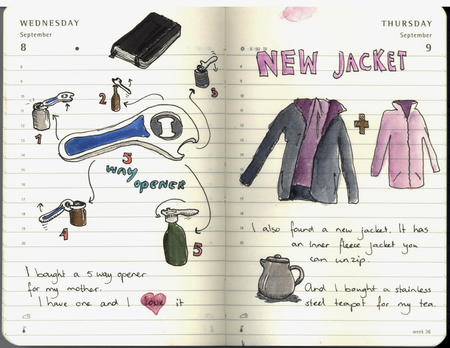 WEDNESDAY
September
8
2
3
1
5
way
opener
4
5
I bought a 5 way opener
for my mother.
I have one and I love it
THURSDAY
September
9
NEW JACKET
+
I also found a new jacket. It has
an inner fleece jacket you
can unzip.
And I bought a stainless
steel teapot for my tea.
week 36